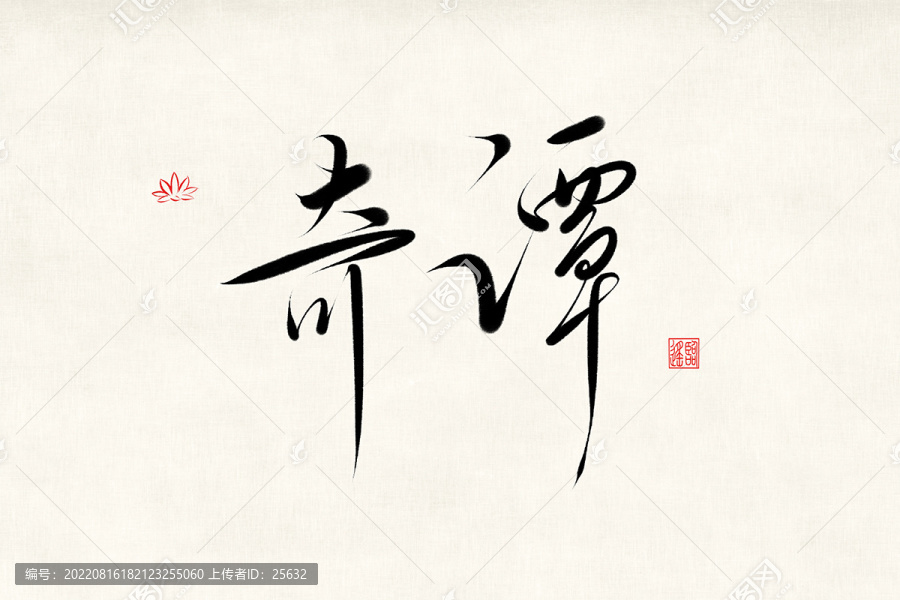 奇谭
编号：20220816182123255060 上传者ID：25632